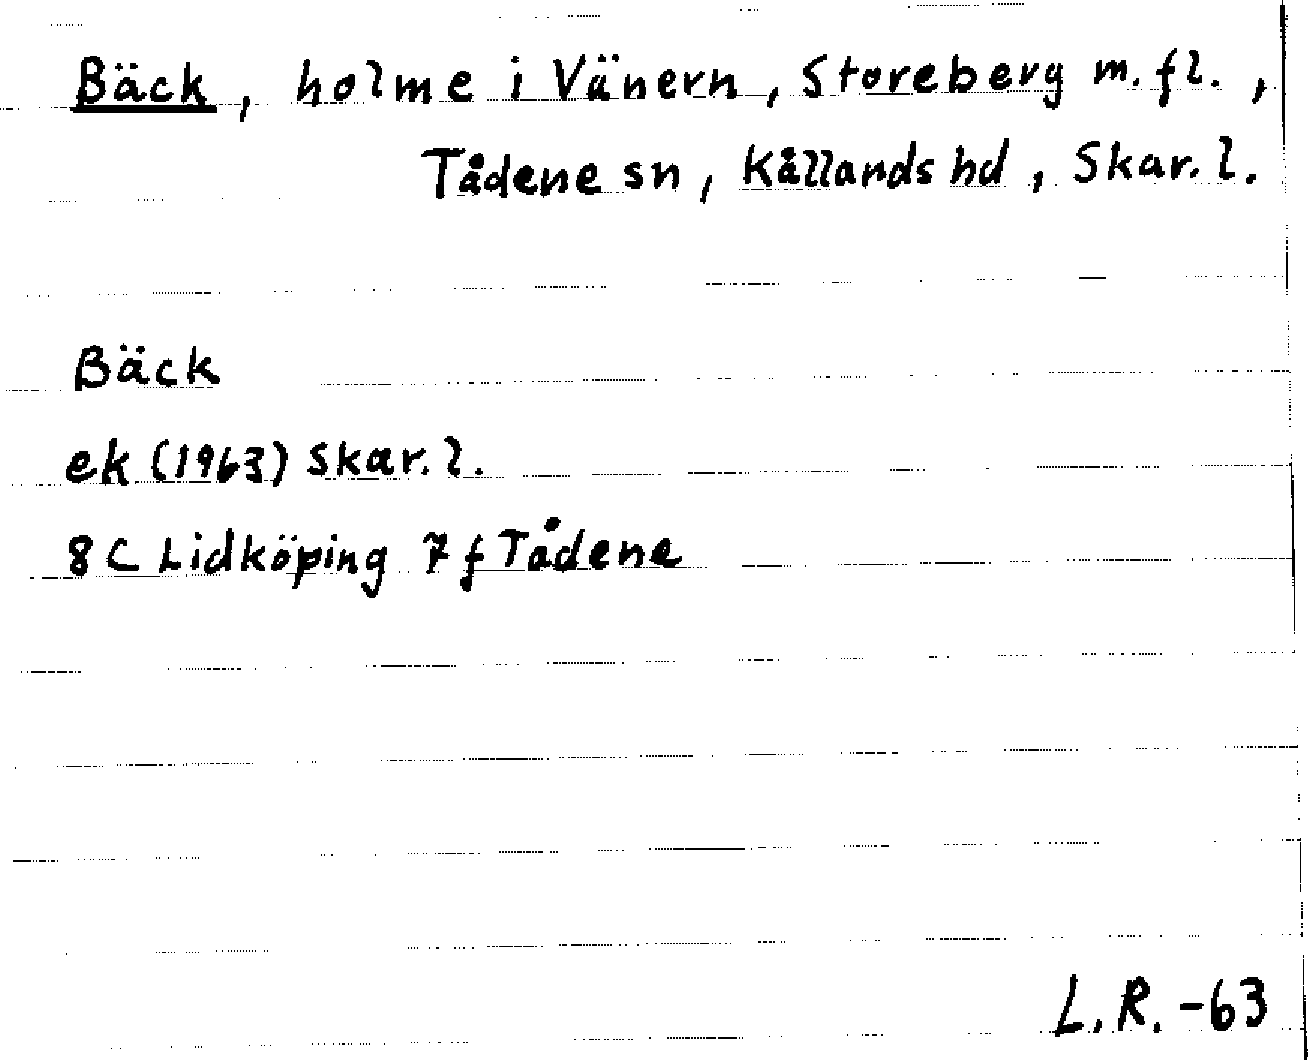 Bäck, holme i Vänern, Storeberg m.fl.,
Tådene sn, Kållands hd, Skar. l.
Bäck
ek (1963) Skar. l.
8 C Lidköping 7 f Tådene
L.R. -63